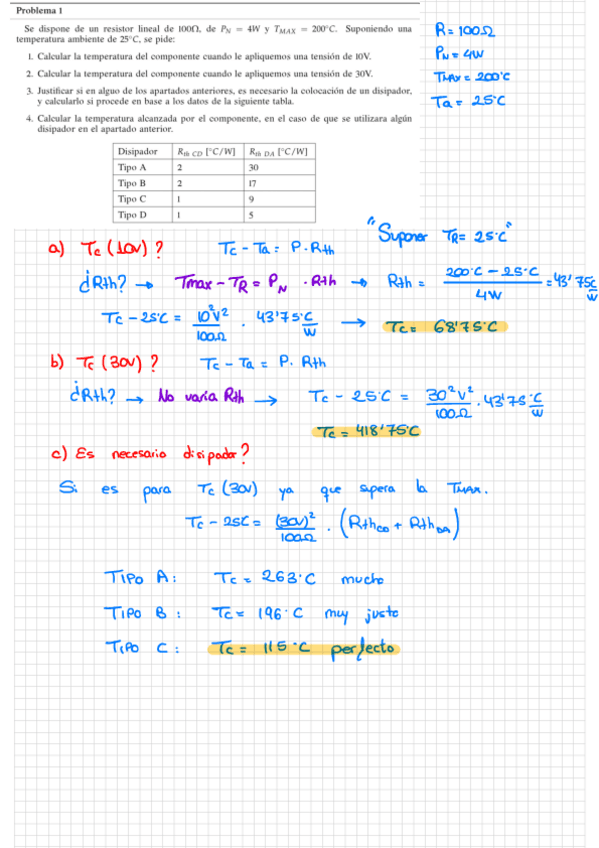 Problema 1
Se dispone de un resistor lineal de 100Ω, de P_N = 4W y T_MAX = 200°C. Suponiendo una
temperatura ambiente de 25°C, se pide:
1. Calcular la temperatura del componente cuando le apliquemos una tensión de 10V.
2. Calcular la temperatura del componente cuando le apliquemos una tensión de 30V.
3. Justificar si en alguo de los apartados anteriores, es necesario la colocación de un disipador,
y calcularlo si procede en base a los datos de la siguiente tabla.
4. Calcular la temperatura alcanzada por el componente, en el caso de que se utilizara algún
disipador en el apartado anterior.
Disipador R_th CD [°C/W] R_th DA [°C/W]
Tipo A 2 30
Tipo B 2 17
Tipo C 1 9
Tipo D 1 5
R = 100Ω
P_N = 4W
T_MAX = 200°C
Ta = 25°C
"Suponer T_R = 25°C"
a) Tc (10V) ? Tc - Ta = P · Rth
¿Rth? → Tmax - T_R = P_N · Rth → Rth = 200°C - 25°C / 4W = 43'75 °C/W
Tc - 25°C = 10²V² / 100Ω · 43'75 °C/W → Tc = 68'75°C
b) Tc (30V) ? Tc - Ta = P · Rth
¿Rth? → No varia Rth → Tc - 25°C = 30²V² / 100Ω · 43'75 °C/W
Tc = 418'75°C
c) Es necesario disipador?
Si es para Tc (30V) ya que supera la TMAX.
Tc - 25C = (30V)² / 100Ω · (Rth_CD + Rth_DA)
TIPO A: Tc = 263°C mucho
TIPO B: Tc = 196°C muy justo
TIPO C: Tc = 115°C perfecto